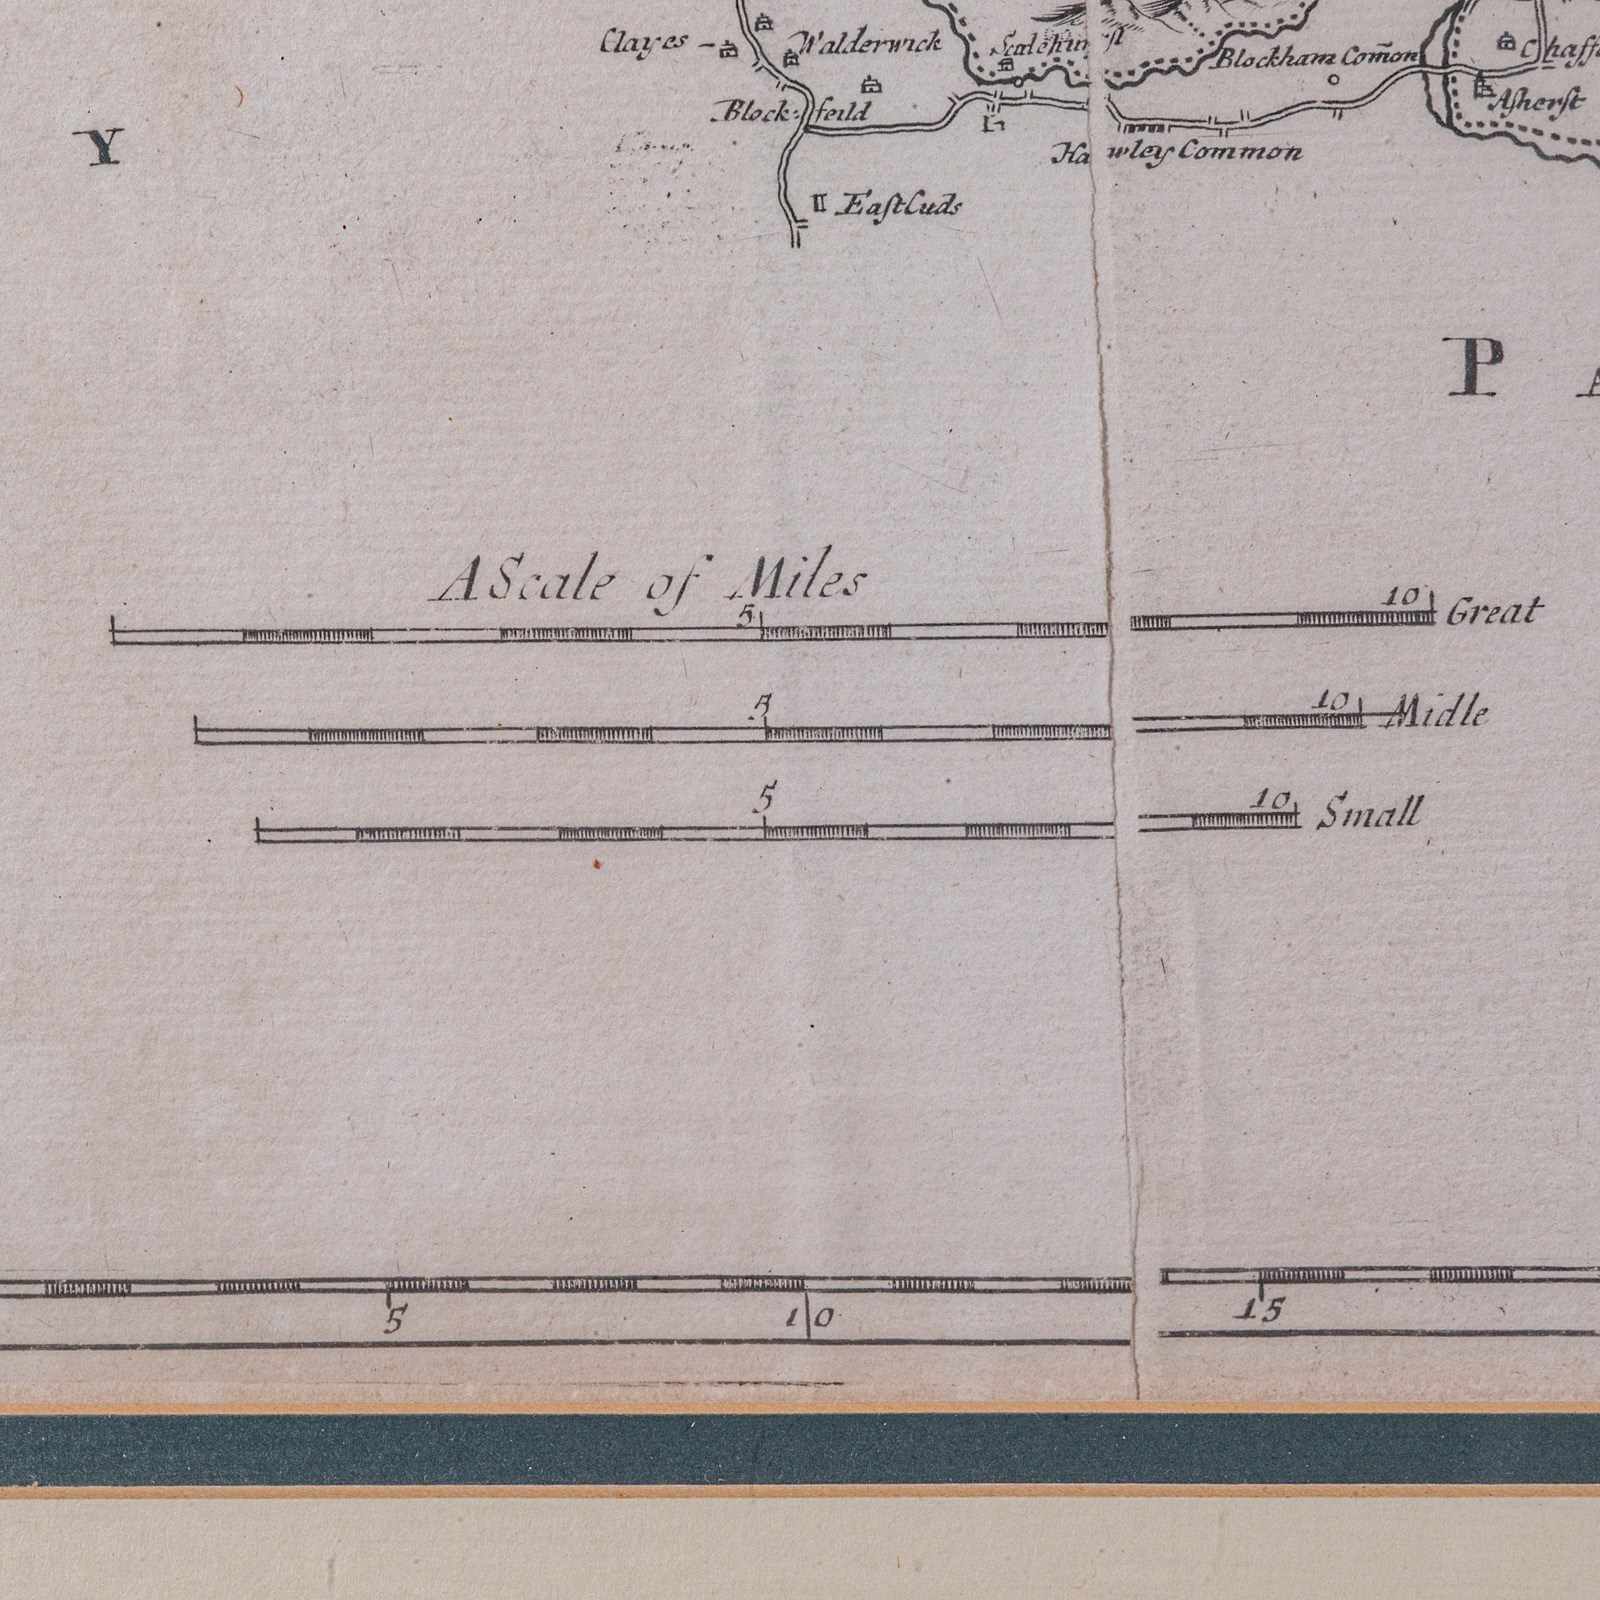 Clayes
Walderwick
Blockham Com̃on
Block:feild
Asherſt
Y
Hawley Common
EaſtLuds
P A
A Scale of Miles
5 10 Great
5 10 Midle
5 10 Small
5 10 15